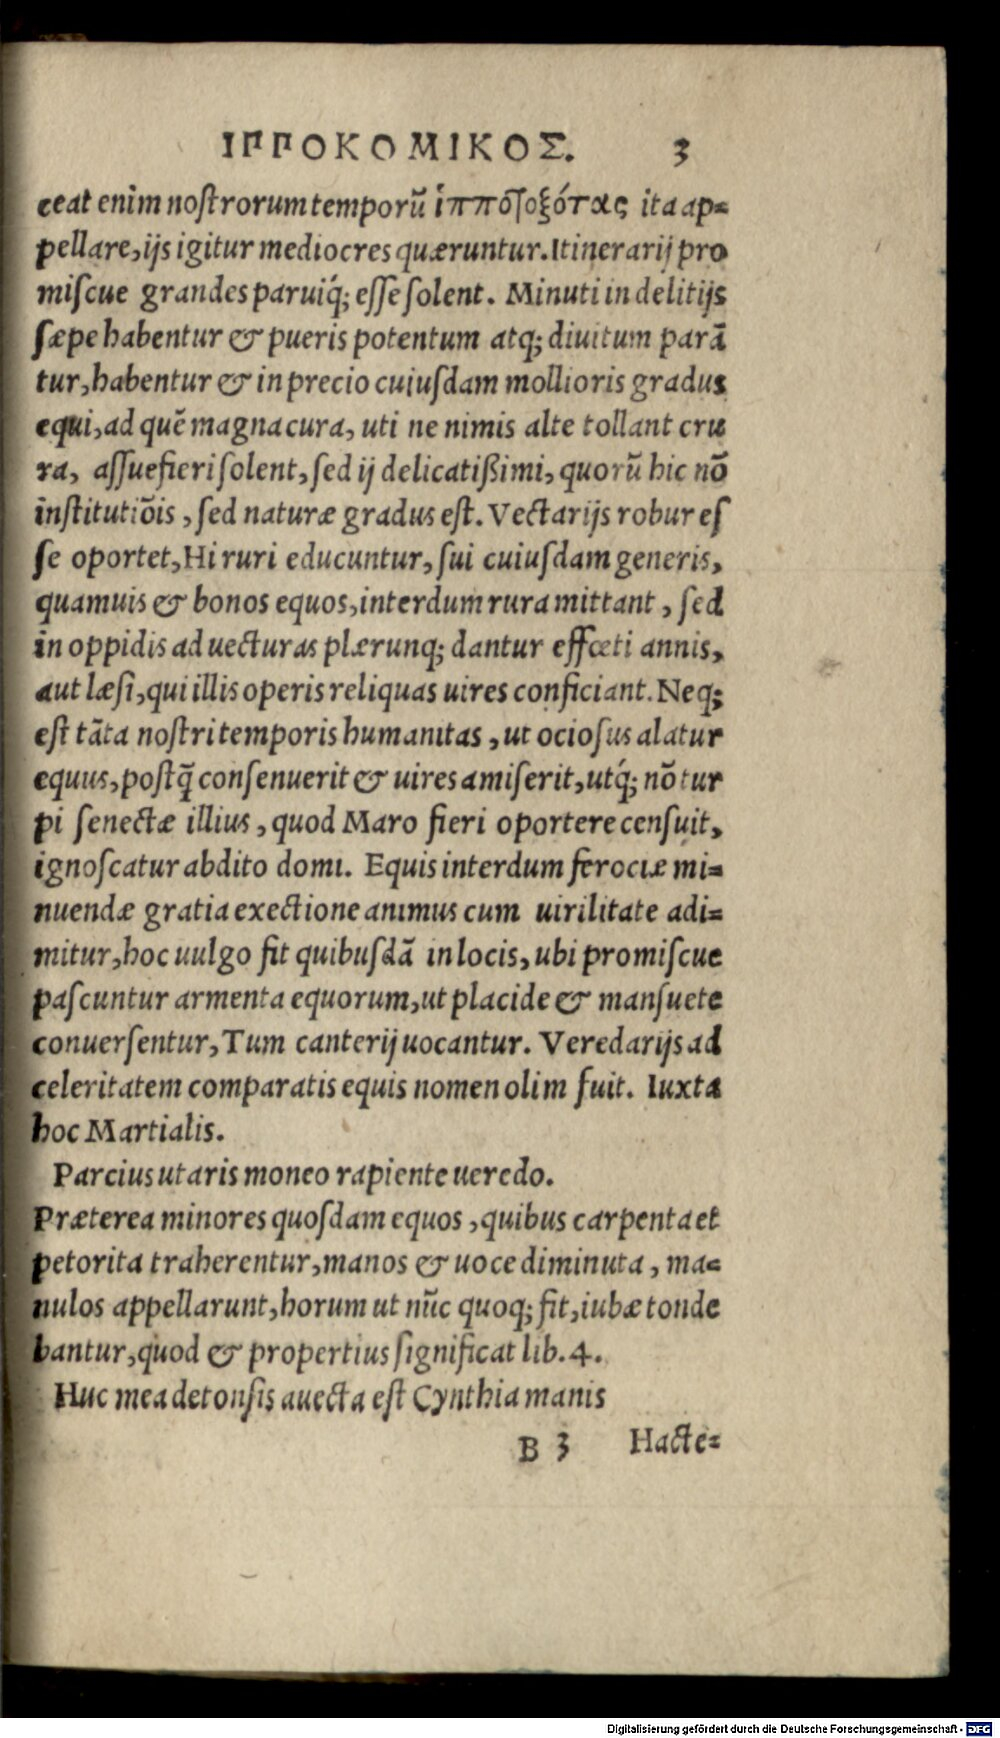 ΙΠΠΟΚΟΜΙΚΟΣ. 3
ceat enim nostrorum temporũ ἱπποτοξότας ita ap=
pellare, ijs igitur mediocres quæruntur. Itinerarij pro
miscue grandes paruiq́; esse solent. Minuti in delitijs
sæpe habentur & pueris potentum atq; diuitum parã
tur, habentur & in precio cuiusdam mollioris gradus
equi, ad quẽ magna cura, uti ne nimis alte tollant cru
ra, assuefieri solent, sed ij delicatißimi, quorũ hic nõ
institutiõis, sed naturæ gradus est. Vectarijs robur es
se oportet, Hi ruri educuntur, sui cuiusdam generis,
quamuis & bonos equos, interdum rura mittant, sed
in oppidis ad uecturas plærunq; dantur effœti annis,
aut læsi, qui illis operis reliquas uires conficiant. Neq;
est tãta nostri temporis humanitas, ut ociosus alatur
equus, postq̃ consenuerit & uires amiserit, utq́; nõ tur
pi senectæ illius, quod Maro fieri oportere censuit,
ignoscatur abdito domi. Equis interdum ferociæ mi=
nuendæ gratia exectione animus cum uirilitate adi=
mitur, hoc uulgo fit quibusdã in locis, ubi promiscue
pascuntur armenta equorum, ut placide & mansuete
conuersentur, Tum canterij uocantur. Veredarijs ad
celeritatem comparatis equis nomen olim fuit. Iuxta
hoc Martialis.
Parcius utaris moneo rapiente ueredo.
Præterea minores quosdam equos, quibus carpenta et
petorita traherentur, manos & uoce diminuta, ma=
nulos appellarunt, horum ut nũc quoq; fit, iubæ tonde
bantur, quod & propertius significat lib. 4.
Huc mea detonsis auecta est Cynthia manis
B 3 Hacte=
Digitalisierung gefördert durch die Deutsche Forschungsgemeinschaft - DFG